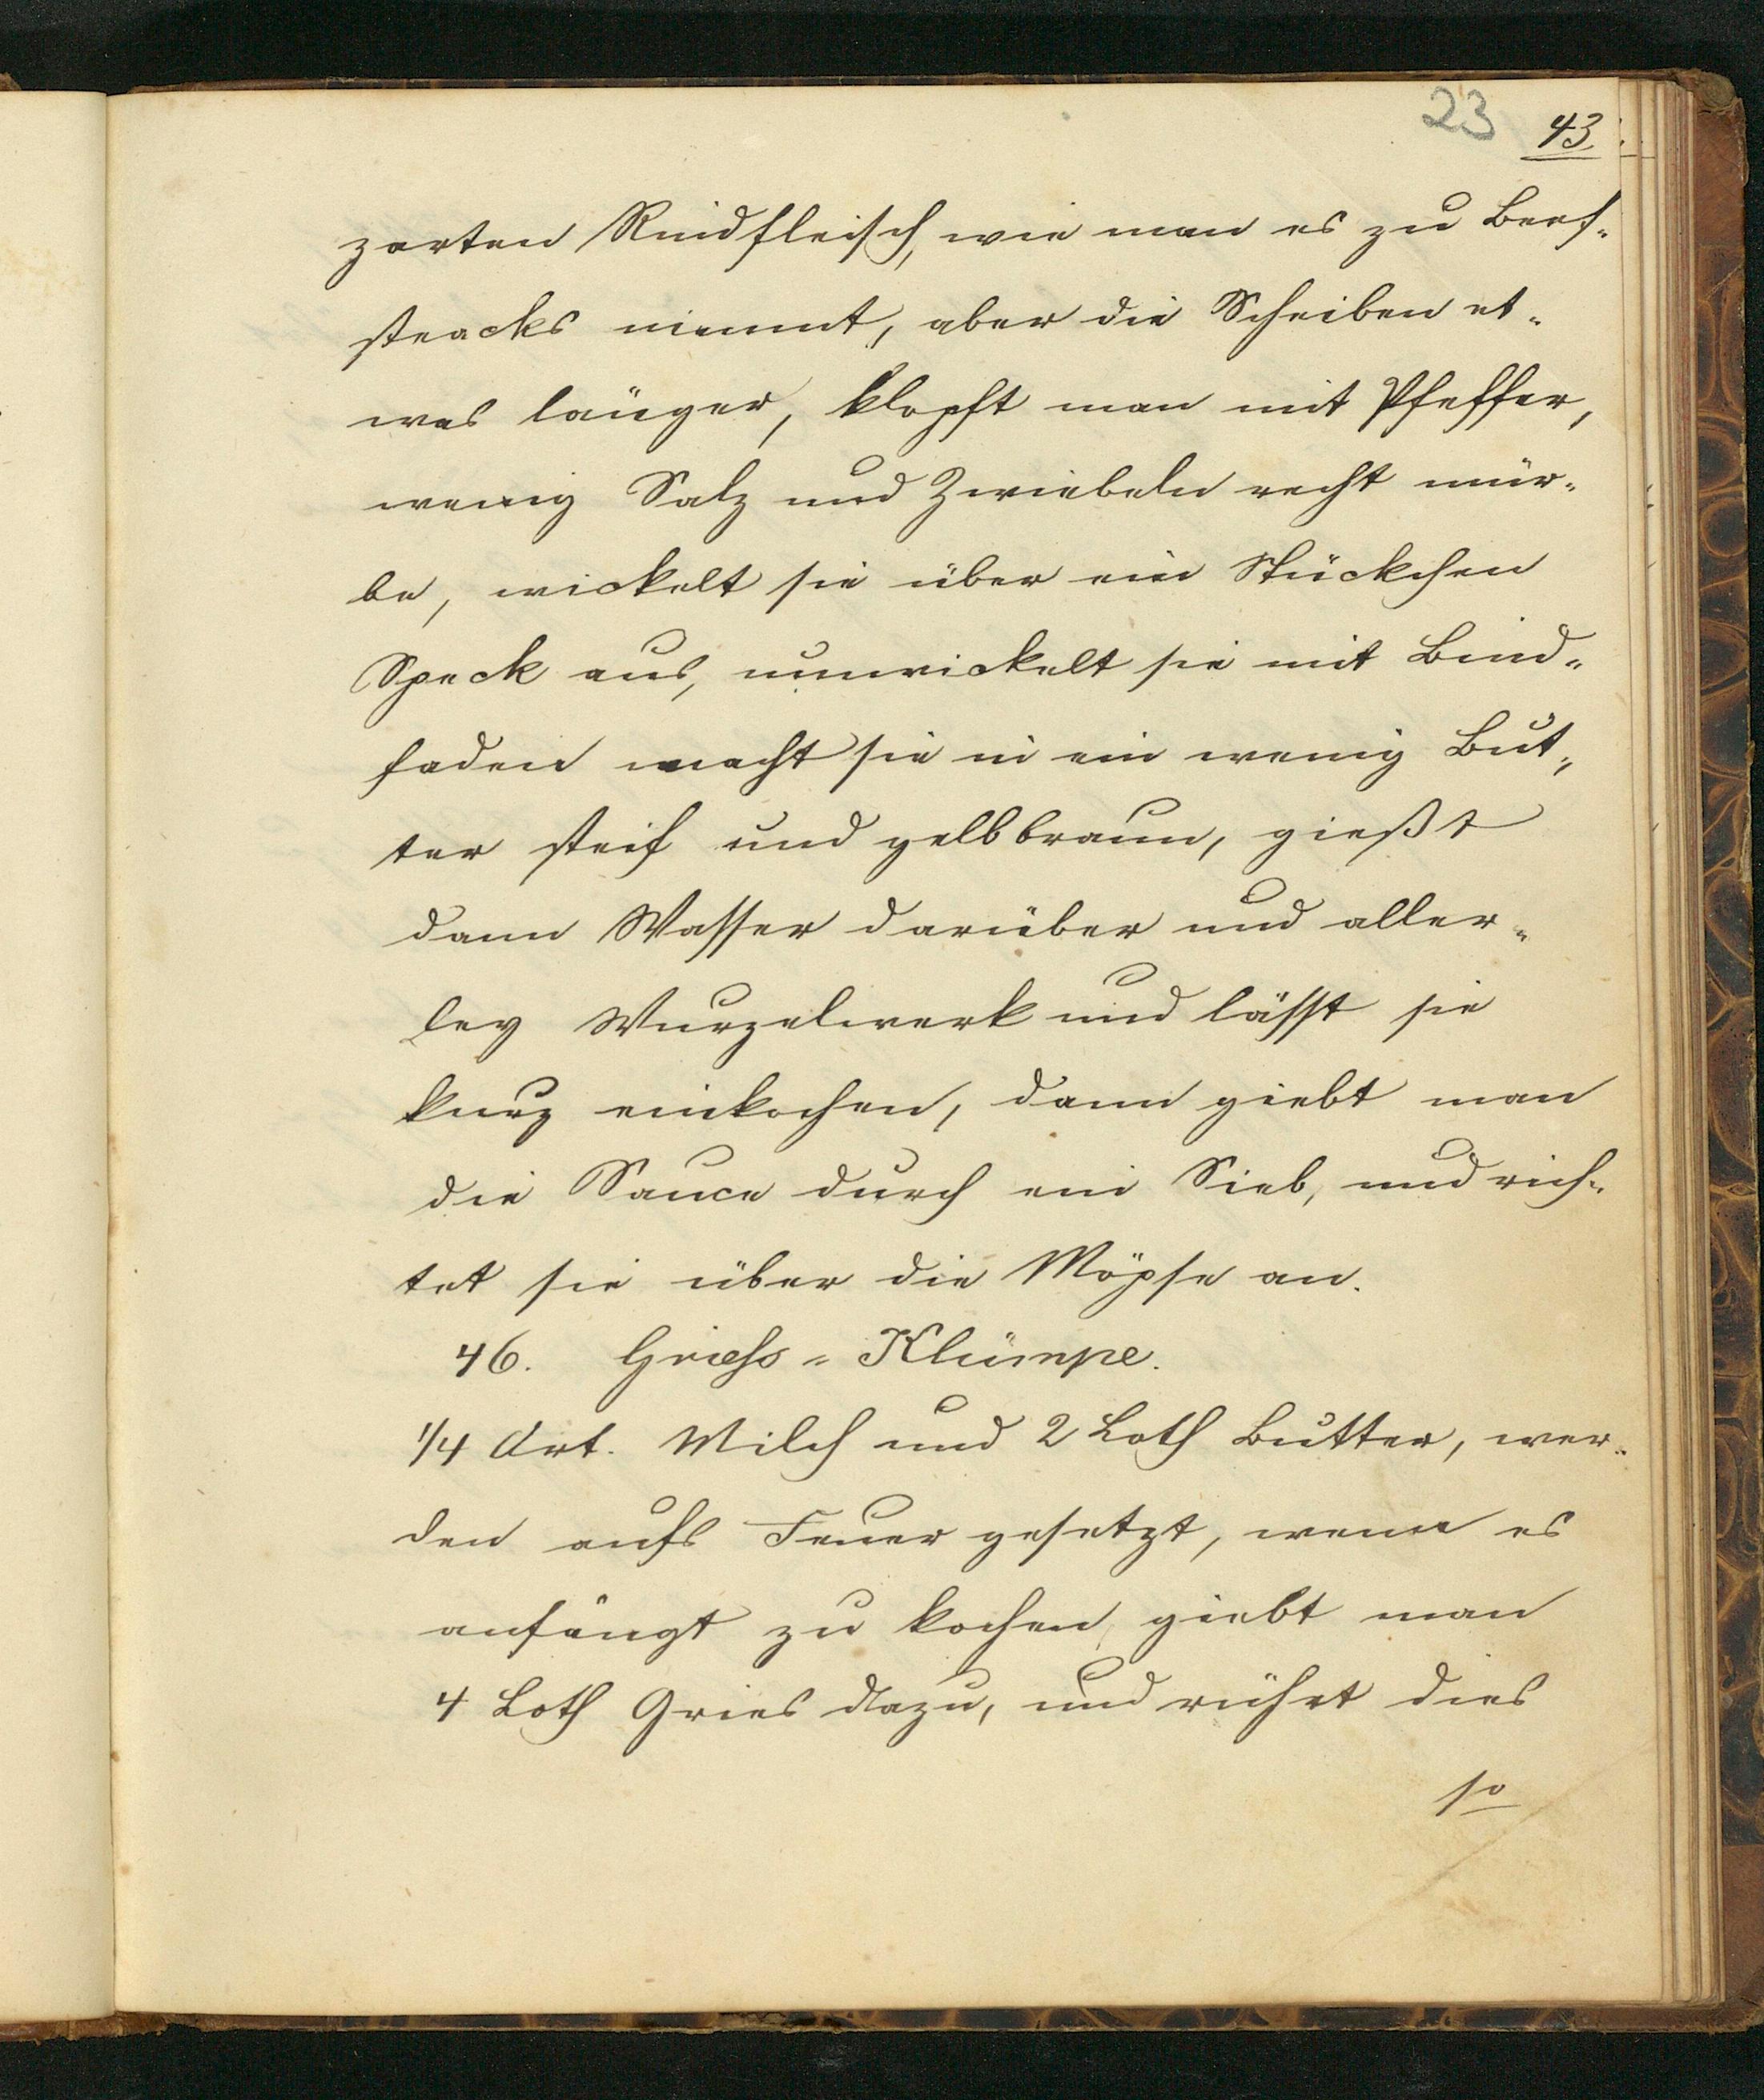 23 43
zarten Rindfleisch, wie man es zu Beef-
steacks nimmt, aber die Scheiben et-
was länger, klopft man mit Pfeffer,
wenig Salz und Zwiebeln recht mür-
be, wickelt sie über ein Stückchen
Speck aus, umwickelt sie mit Bind-
faden macht sie in ein wenig But-
ter steif und gelbbraun, gießt
dann Wasser darüber und aller-
ley Wurzelwerk und lässt sie
kurz einkochen, dann giebt man
die Sauce durch ein Sieb, und rich-
tet sie über die Möpse an.
46. Griess-Klümpe.
1/4 Art. Milch und 2 Loth Butter, wer-
den aufs Feuer gesetzt, wenn es
anfängt zu kochen, giebt man
4 Loth Gries dazu, und rührt dies
so